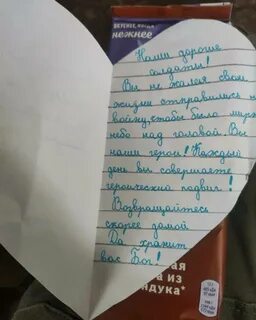 вкуснее, когда
нежнее
Наши дорогие
солдаты!
Вы не жалея свои
жизни отправились на
войну, чтобы было мирное
небо над головой. Вы
наши герои! Каждый
день вы совершаете
героический подвиг!
Возвращайтесь
скорее домой
Да хранит
вас Бог!